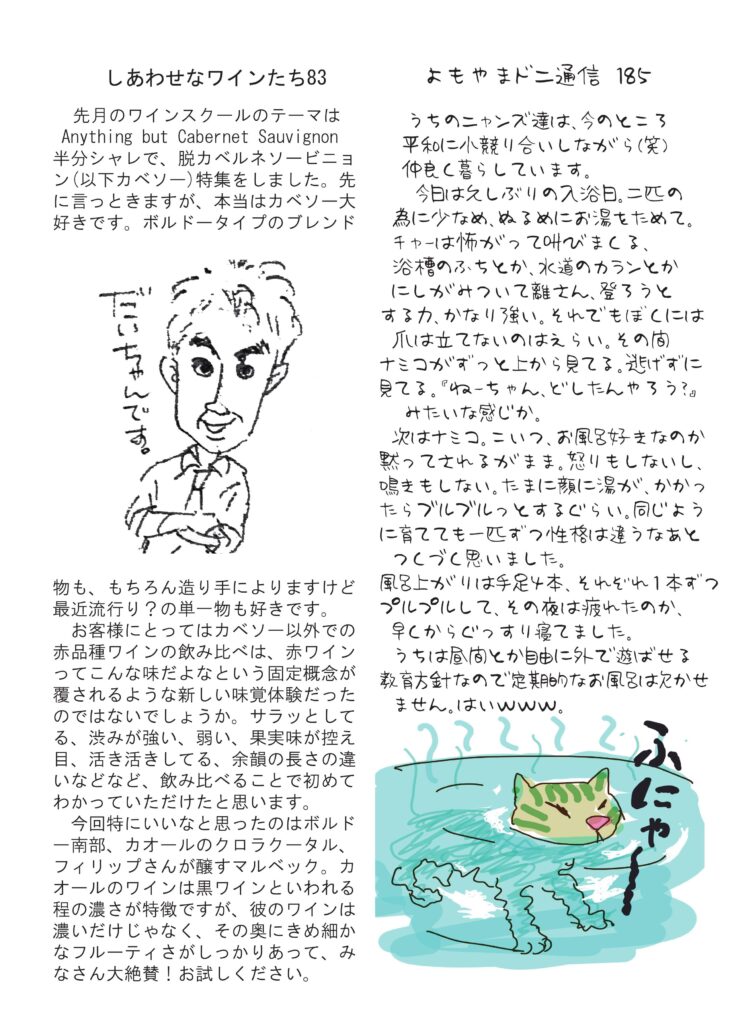 しあわせなワインたち83
先月のワインスクールのテーマは
Anything but Cabernet Sauvignon
半分シャレで、脱カベルネソービニョ
ン(以下カベソー)特集をしました。先
に言っときますが、本当はカベソー大
好きです。ボルドータイプのブレンド
だいちゃんです。
物も、もちろん造り手によりますけど
最近流行り？の単一物も好きです。
お客様にとってはカベソー以外での
赤品種ワインの飲み比べは、赤ワイン
ってこんな味だよなという固定概念が
覆されるような新しい味覚体験だった
のではないでしょうか。サラッとして
る、渋みが強い、弱い、果実味が控え
目、活き活きしてる、余韻の長さの違
いなどなど、飲み比べることで初めて
わかっていただけたと思います。
今回特にいいなと思ったのはボルド
ー南部、カオールのクロラクータル、
フィリップさんが醸すマルベック。カ
オールのワインは黒ワインといわれる
程の濃さが特徴ですが、彼のワインは
濃いだけじゃなく、その奥にきめ細か
なフルーティさがしっかりあって、み
なさん大絶賛！お試しください。
よもやまドニ通信 185
うちのニャンズ達は、今のところ
平和に小競り合いしながら(笑)
仲良く暮らしています。
今日は久しぶりの入浴日。二匹の
為に少なめ、ぬるめにお湯をためて。
チャーは怖がって叫びまくる、
浴槽のふちとか、水道のカランとか
にしがみついて離さん、登ろうと
する力、かなり強い。それでもぼくには
爪は立てないのはえらい。その間
ナミコがずっと上から見てる。逃げずに
見てる。『ねーちゃん、どしたんやろう？』
みたいな感じか。
次はナミコ。こいつ、お風呂好きなのか
黙ってされるがまま。怒りもしないし、
鳴きもしない。たまに顔に湯が、かかっ
たらブルブルっとするぐらい。同じよう
に育てても一匹ずつ性格は違うなあと
つくづく思いました。
風呂上がりは手足4本、それぞれ1本ずつ
プルプルして、その夜は疲れたのか、
早くからぐっすり寝てました。
うちは昼間とか自由に外で遊ばせる
教育方針なので定期的なお風呂は欠かせ
ません。はいwww。
ふにゃ〜